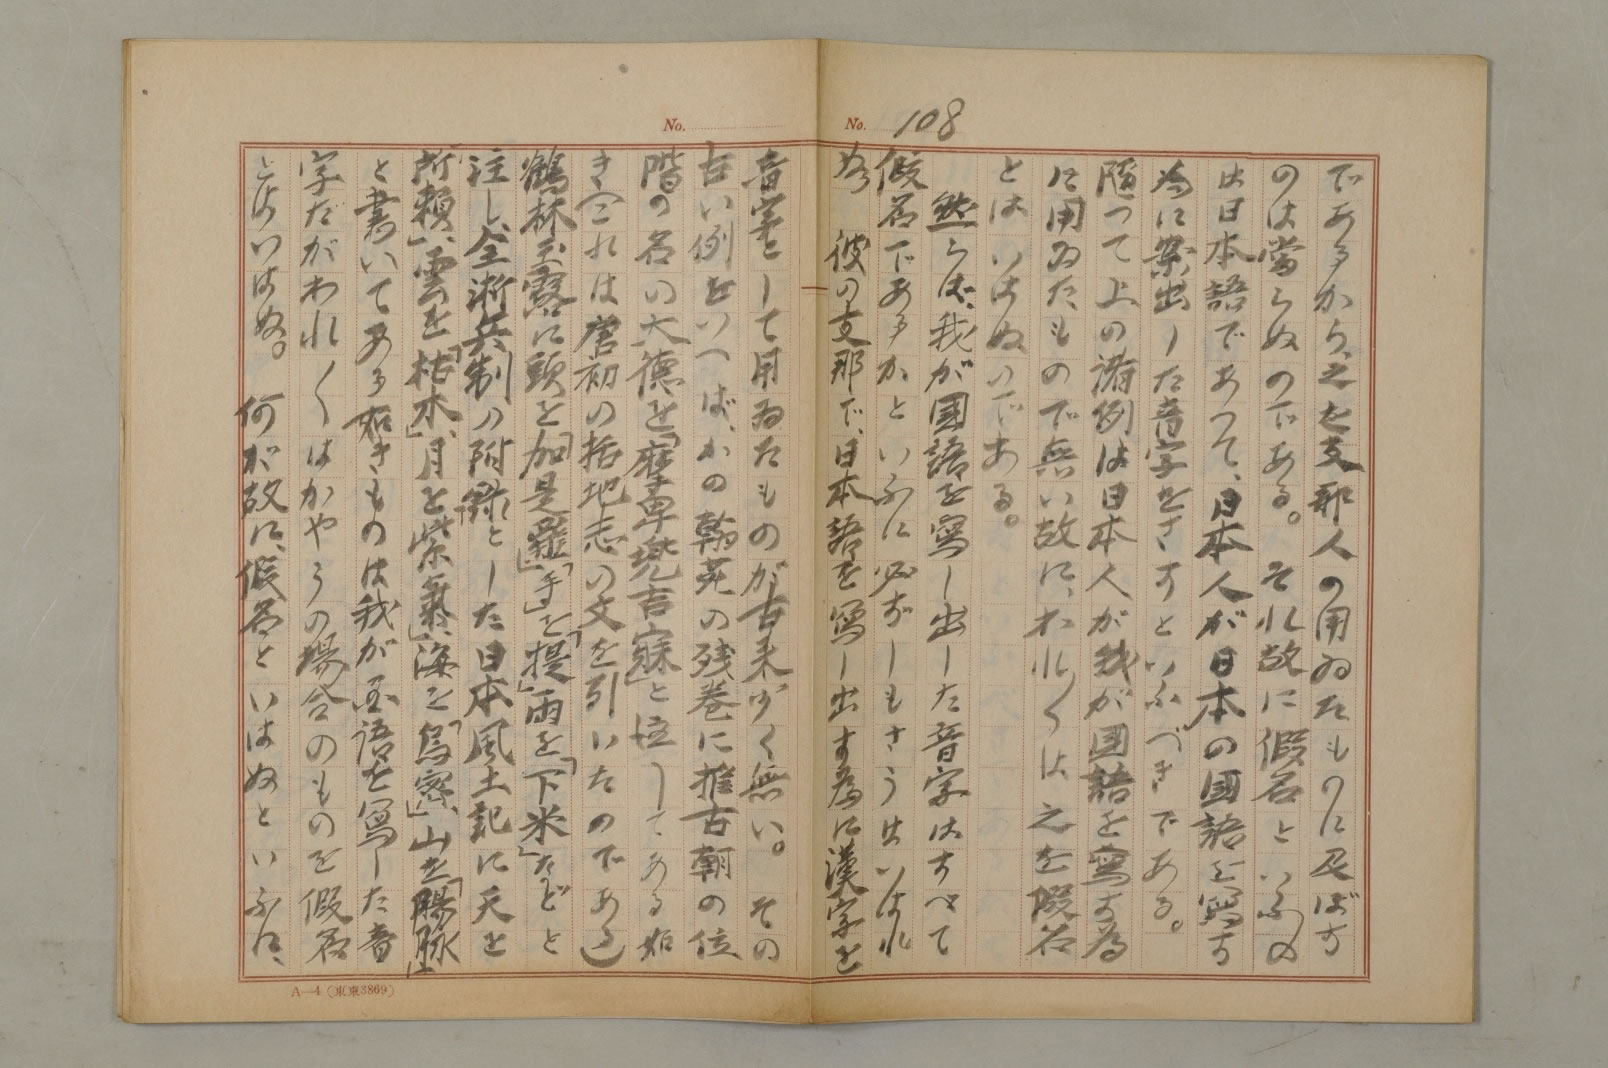 No. 108
であるから、之を支那人の用ゐたものに及ぼす
のは當らぬのである。それ故に假名といふの
は日本語であつて、日本人が日本の國語を寫す
為に案出した音字をさすといふべきである。
隨つて上の諸例は日本人が我が國語を寫す為
に用ゐたもので無い故に、われ〱は之を假名
とはいはぬのである。
然らば、我が國語を寫し出した音字はすべて
假名であるかといふに必ずしもさうはいはれ
ぬ。彼の支那で、日本語を寫し出す為に漢字を
No.
音字として用ゐたものが古来少く無い。その
古い例をいへば、かの翰苑の残巻に推古朝の位
階の名の大德を「麻卑兜吉寐」と注してある如
き(これは唐初の括地志の文を引いたのである)
鶴林玉露に頭を「加是羅」「手」を「提」雨を「下米」などと
注し、全浙兵制の附録とした日本風土記に天を
所頼」、雲を「枯木」、月を「紫氣」、海を「烏密」、山を「賜脉」
と書いてある如きものは我が国語を寫した音
字だがわれ〱はかやうの場合のものを假名
とはいはぬ。何が故に、假名といはぬといふに、
A—4(東東3869)